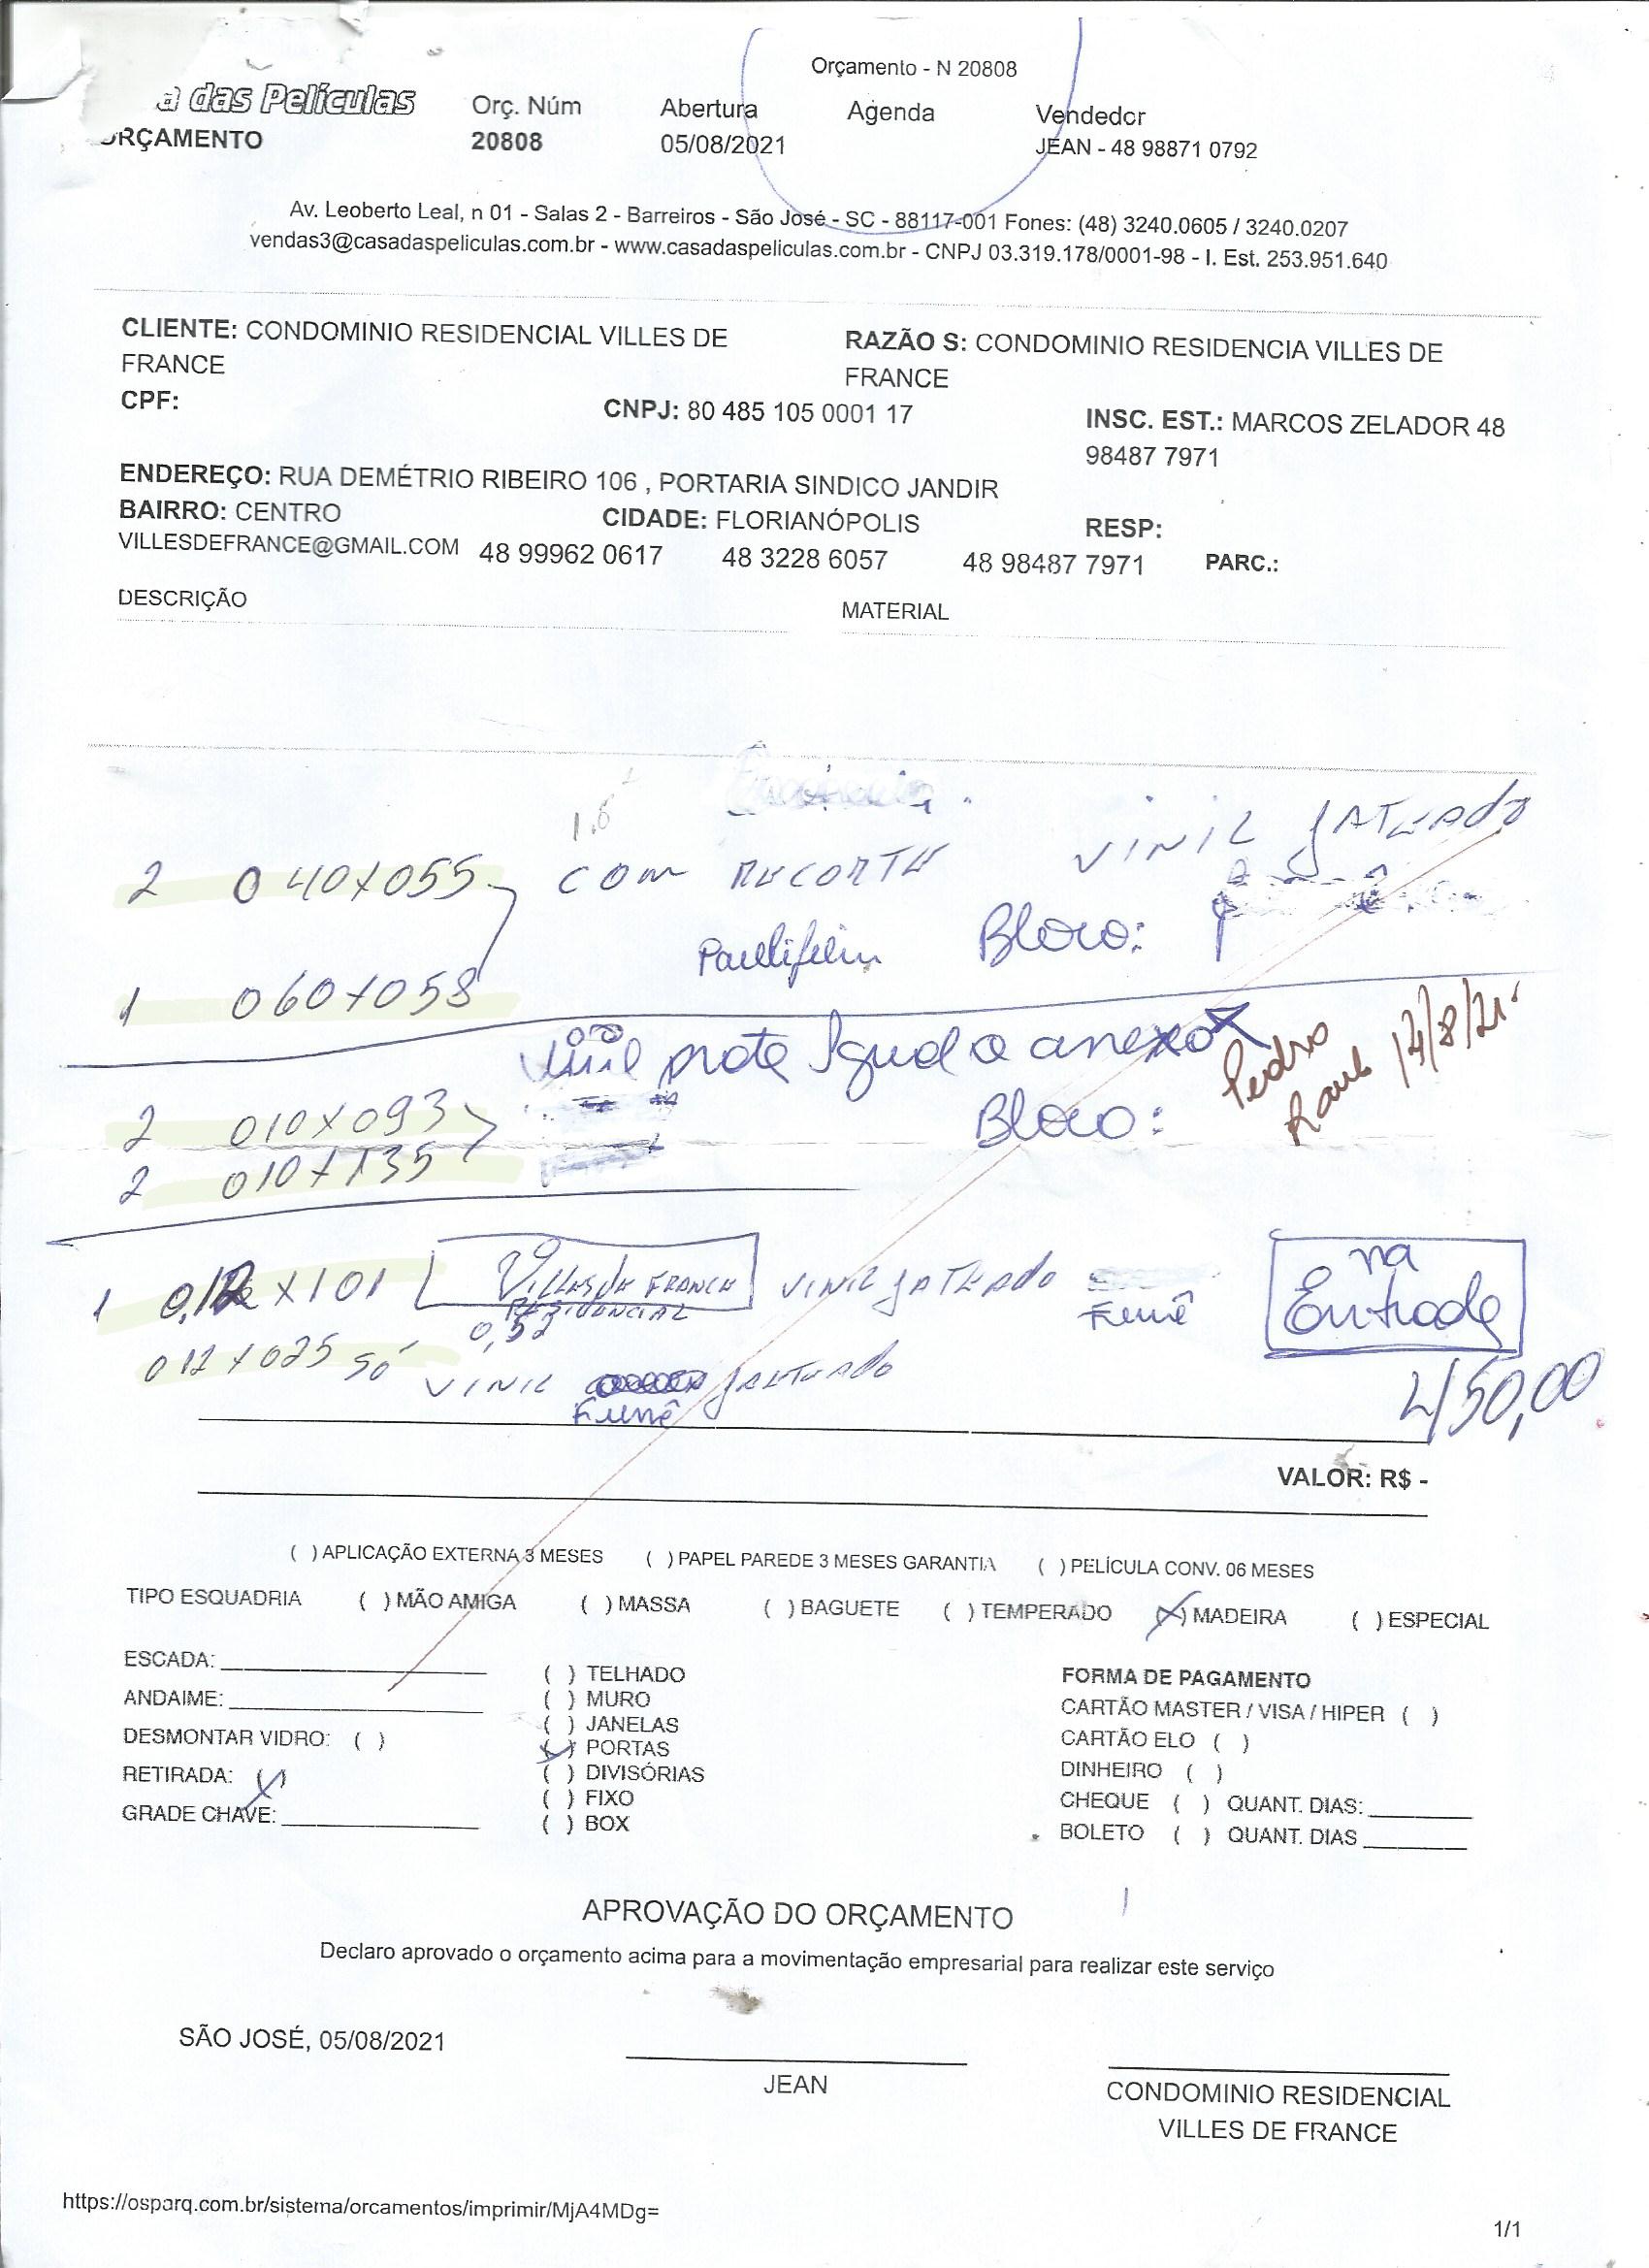 Orçamento - N 20808
a das Películas
Orç. Núm Abertura Agenda Vendedor
ORÇAMENTO 20808 05/08/2021 JEAN - 48 98871 0792
Av. Leoberto Leal, n 01 - Salas 2 - Barreiros - São José - SC - 88117-001 Fones: (48) 3240.0605 / 3240.0207
vendas3@casadaspeliculas.com.br - www.casadaspeliculas.com.br - CNPJ 03.319.178/0001-98 - I. Est. 253.951.640
CLIENTE: CONDOMINIO RESIDENCIAL VILLES DE FRANCE
RAZÃO S: CONDOMINIO RESIDENCIA VILLES DE FRANCE
CPF: CNPJ: 80 485 105 0001 17 INSC. EST.: MARCOS ZELADOR 48 98487 7971
ENDEREÇO: RUA DEMÉTRIO RIBEIRO 106 , PORTARIA SINDICO JANDIR
BAIRRO: CENTRO CIDADE: FLORIANÓPOLIS RESP:
VILLESDEFRANCE@GMAIL.COM 48 99962 0617 48 3228 6057 48 98487 7971 PARC.:
DESCRIÇÃO MATERIAL
1.6
2 040x055 COM RECORTE VINIL JATEADO
Bloco:
1 060x058
Vinil prata Igual o anexo
Pedro
14/8/21
2 010x093 Bloco:
2 010x135
1 0,12 x 101 VILLES DE FRANCE VINIL JATEADO Fumê na Entrada
RESIDENCIAL
0,52
012 x 025 SÓ VINIL JATEADO
Fumê
450,00
VALOR: R$ -
( ) APLICAÇÃO EXTERNA 3 MESES ( ) PAPEL PAREDE 3 MESES GARANTIA ( ) PELÍCULA CONV. 06 MESES
TIPO ESQUADRIA ( ) MÃO AMIGA ( ) MASSA ( ) BAGUETE ( ) TEMPERADO (X) MADEIRA ( ) ESPECIAL
ESCADA:
ANDAIME:
DESMONTAR VIDRO: ( )
RETIRADA: (X)
GRADE CHAVE:
( ) TELHADO
( ) MURO
( ) JANELAS
(X) PORTAS
( ) DIVISÓRIAS
( ) FIXO
( ) BOX
FORMA DE PAGAMENTO
CARTÃO MASTER / VISA / HIPER ( )
CARTÃO ELO ( )
DINHEIRO ( )
CHEQUE ( ) QUANT. DIAS:
BOLETO ( ) QUANT. DIAS
APROVAÇÃO DO ORÇAMENTO
Declaro aprovado o orçamento acima para a movimentação empresarial para realizar este serviço
SÃO JOSÉ, 05/08/2021
JEAN
CONDOMINIO RESIDENCIAL
VILLES DE FRANCE
https://osparq.com.br/sistema/orcamentos/imprimir/MjA4MDg=
1/1